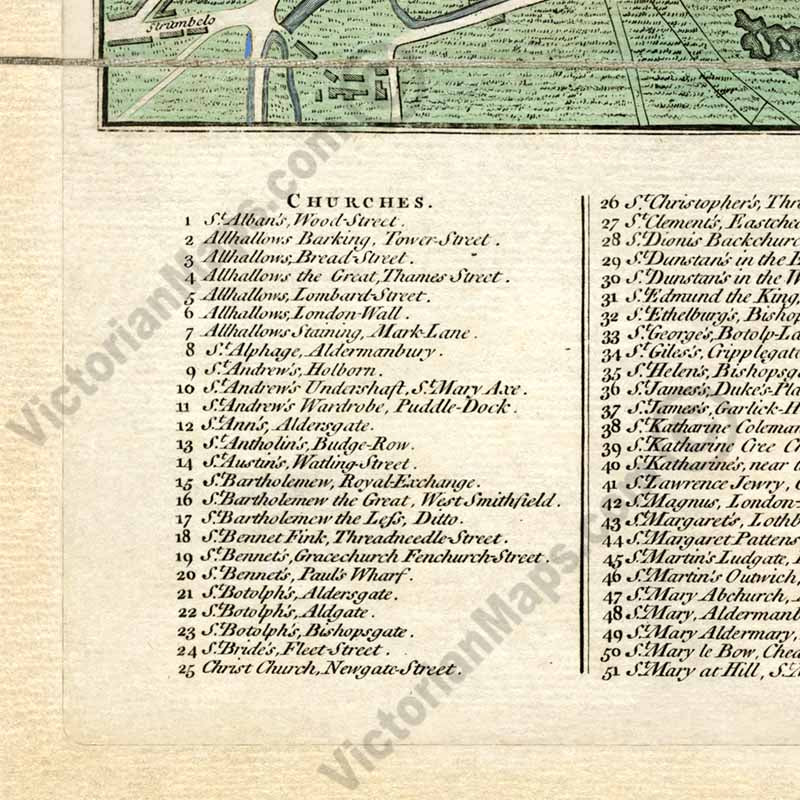 Strumbelo
CHURCHES.
1 St. Alban's, Wood-Street.
2 Allhallows Barking, Tower-Street.
3 Allhallows, Bread-Street.
4 Allhallows the Great, Thames Street.
5 Allhallows, Lombard-Street.
6 Allhallows, London-Wall.
7 Allhallows Staining, Mark-Lane.
8 St. Alphage, Aldermanbury.
9 St. Andrew's, Holborn.
10 St. Andrew's Undershaft, St. Mary Axe.
11 St. Andrew's Wardrobe, Puddle-Dock.
12 St. Ann's, Aldersgate.
13 St. Antholin's, Budge-Row.
14 St. Austin's, Watling-Street.
15 St. Bartholemew, Royal-Exchange.
16 St. Bartholemew the Great, West Smithfield.
17 St. Bartholemew the Leſs, Ditto.
18 St. Bennet Fink, Threadneedle-Street.
19 St. Bennet's, Gracechurch Fenchurch-Street.
20 St. Bennet's, Paul's Wharf.
21 St. Botolph's, Aldersgate.
22 St. Botolph's, Aldgate.
23 St. Botolph's, Bishopsgate.
24 St. Bride's, Fleet-Street.
25 Christ Church, Newgate-Street.
26 St. Christopher's, Thr
27 St. Clement's, Eastchea
28 St. Dionis Backchurc
29 St. Dunstan's in the E
30 St. Dunstan's in the W
31 St. Edmund the King,
32 St. Ethelburg's, Bishop
33 St. George's, Botolp-La
34 St. Giles's, Cripplegate
35 St. Helen's, Bishopsga
36 St. James's, Duke's-Pla
37 St. James's, Garlick-H
38 St. Katharine Coleman
39 St. Katharine Cree C
40 St. Katharine's, near t
41 St. Lawrence Jewry, C
42 St. Magnus, London-
43 St. Margaret's, Lothb
44 St. Margaret Pattens
45 St. Martin's Ludgate,
46 St. Martin's Outwich,
47 St. Mary Abchurch,
48 St. Mary, Aldermanb
49 St. Mary Aldermary,
50 St. Mary le Bow, Chea
51 St. Mary at Hill, St. A
VictorianMaps.com
VictorianMaps.com